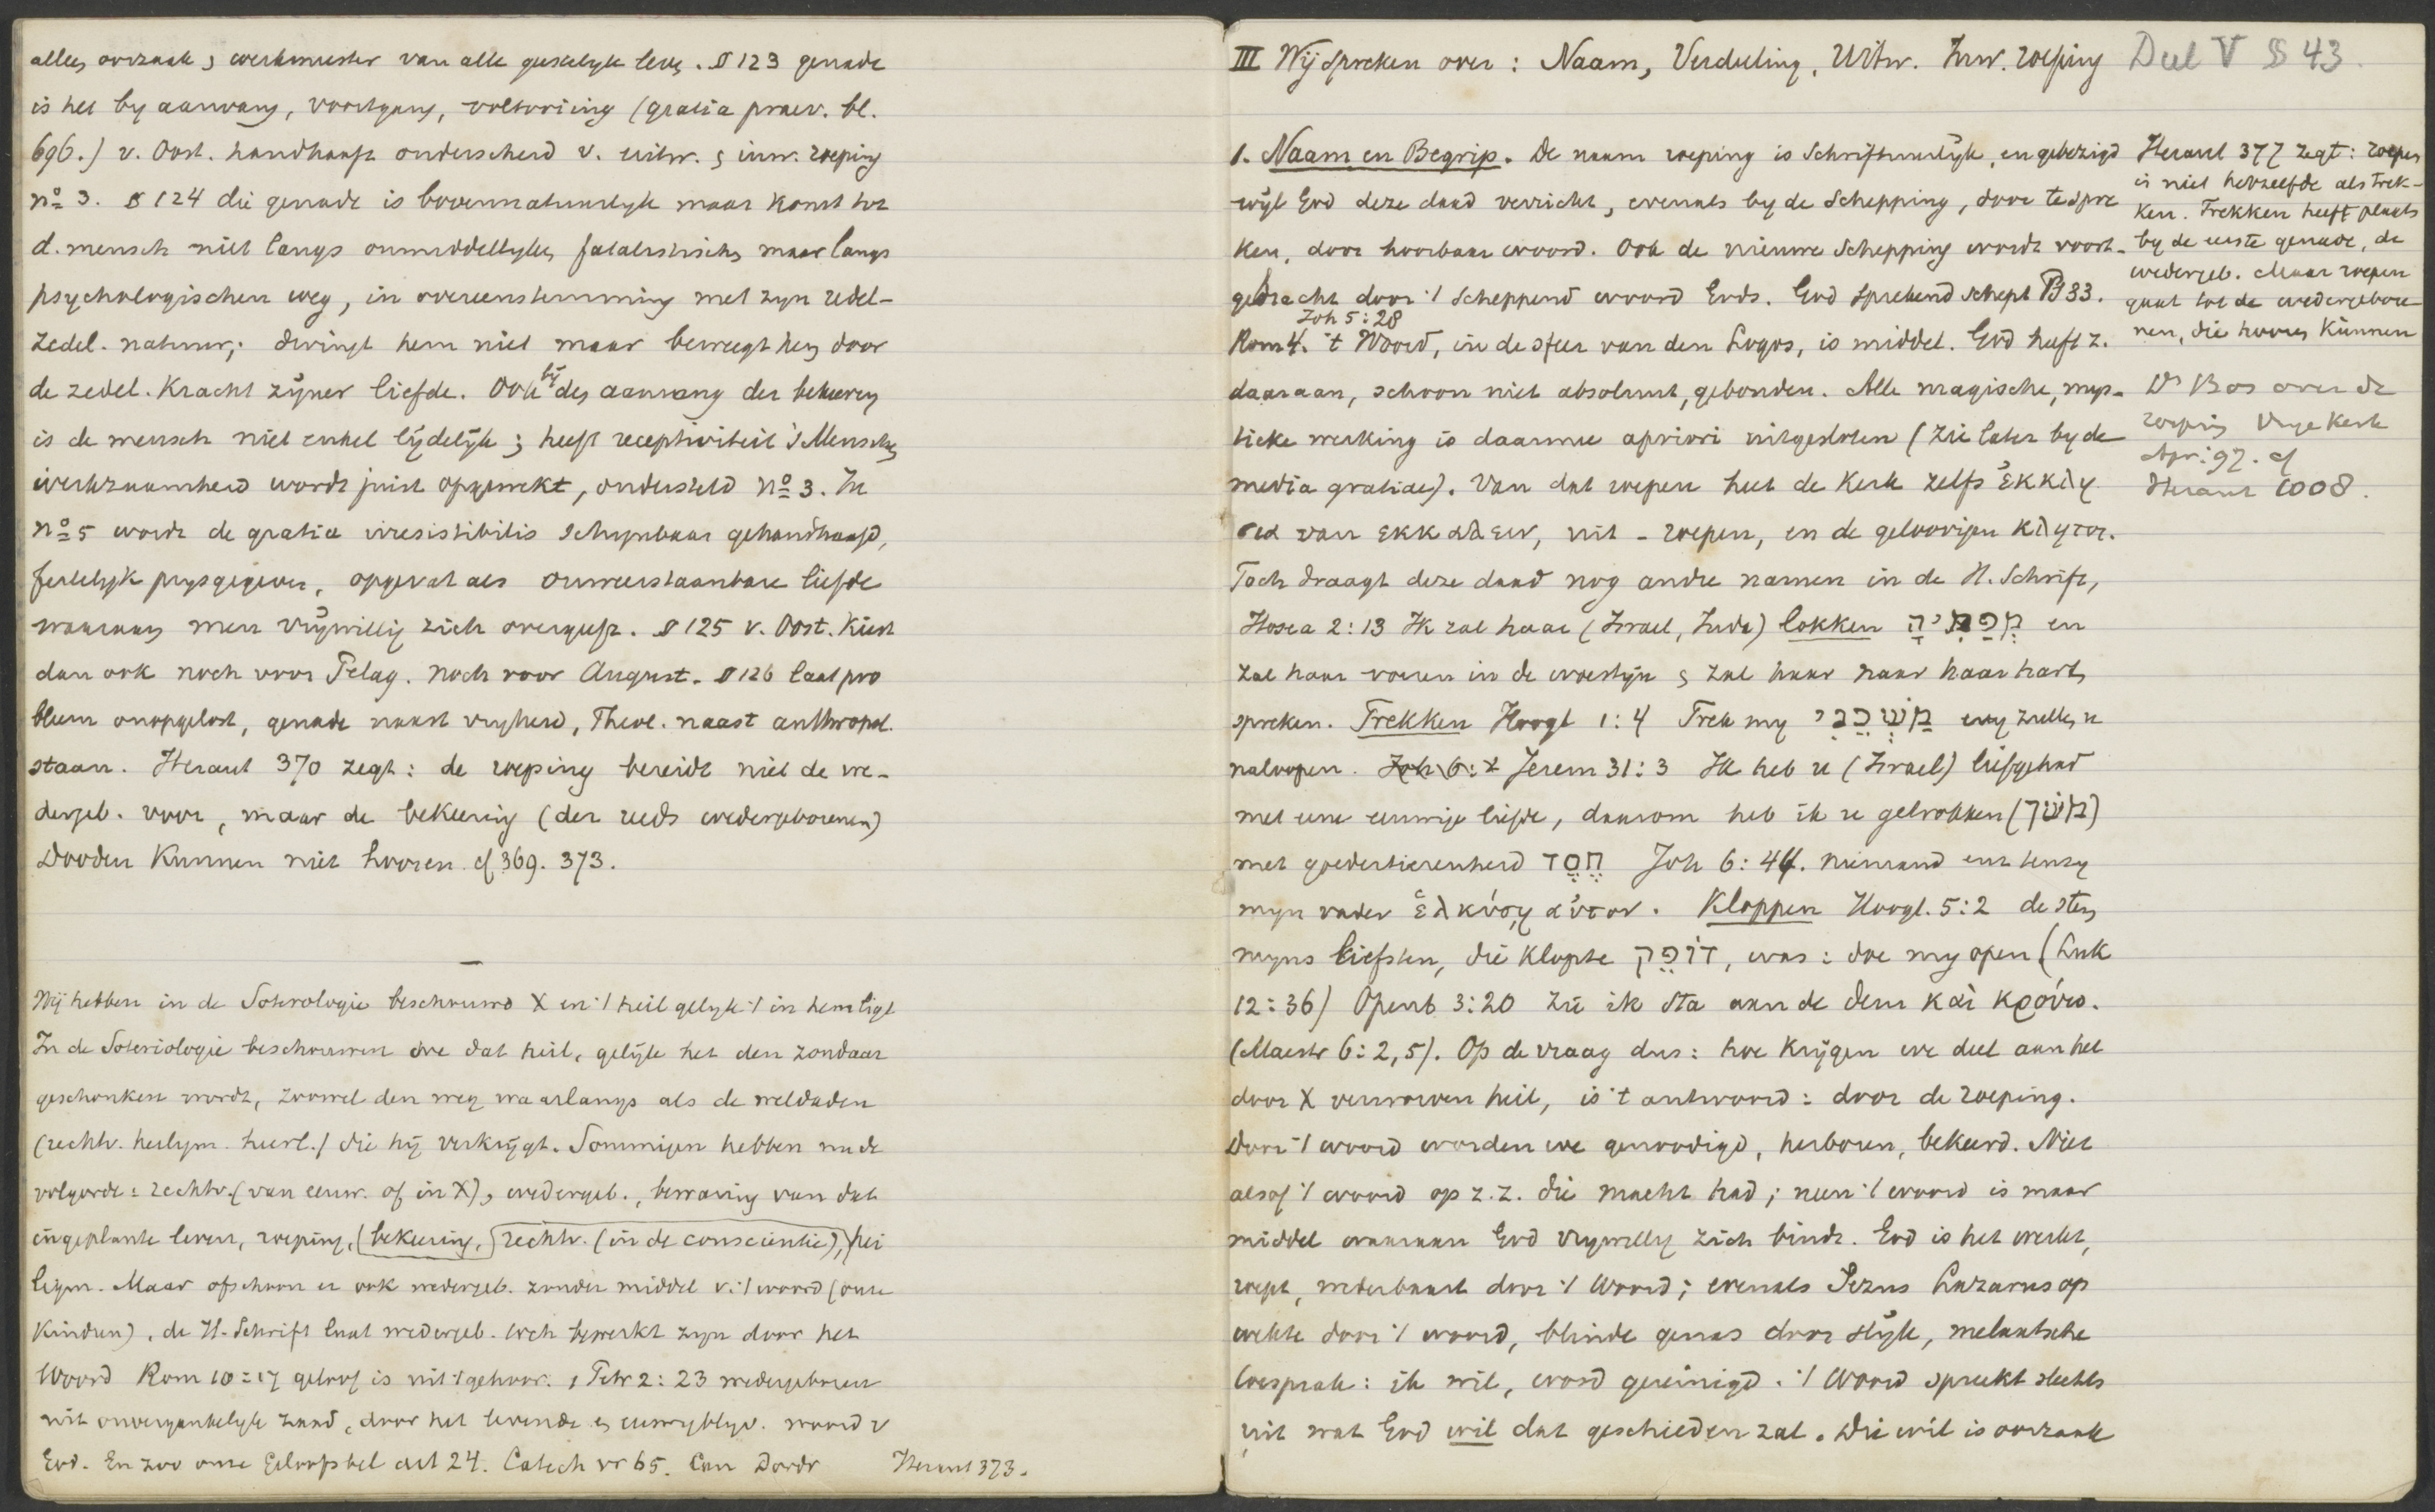 alles oorzaak, werkmeester van alle geestelyk leven. § 123 genade
is het by aanvang, voortgang, voltooiing (gratia praev. bl.
696.) v. Oost. handhaaft onderscheid v. uitw. & inw. roeping
no 3. § 124 die genade is bovennatuurlyk maar komt tot
d. mensch niet langs onmiddellyken, fatalistischen maar langs
psychologischen weg, in overeenstemming met zyn redel-
zedel. natuur; dwingt hem niet maar beweegt hem door
de zedel. kracht zijner liefde. Ook by den aanvang der bekeering
is de mensch niet enkel lijdelijk; heeft receptiviteit 's Menschen
werkzaamheid wordt juist opgewekt, ondersteld no 3. In
no 5 wordt de gratia irresistibilis schynbaar gehandhaafd,
feitelyk prysgegeven, opgevat als onweerstaanbare liefde
waaraan men vrijwillig zich overgeeft. § 125 v. Oost. kiest
dan ook noch voor Pelag. noch voor August. § 126 laat pro
bleem onopgelost, genade naast vryheid, Theol. naast anthropol.
staan. Heraut 370 zegt: de roeping bereidt niet de we-
dergeb. voor, maar de bekeering (der reeds wedergeborenen)
Dooden kunnen niet hooren. cf 369. 373.
Wij hebben in de Soterologie beschouwd X en 't heil gelyk 't in hem ligt
In de Soteriologie beschouwen we dat heil, gelijk het den zondaar
geschonken wordt, zoowel den weg waarlangs als de weldaden
(rechtv. heiligm. heerl.) die hij verkrijgt. Sommigen hebben nu de
volgorde: rechtv. (van eeuw. of in X), wedergeb., bewaring van dat
ingeplante leven, roeping, (bekeering, rechtv. (in de conscientie), hei
ligm. Maar ofschoon er ook wedergeb. zonder middel v. 't woord (onze
kinderen), de H. Schrift laat wedergeb. toch bewerkt zyn door het
Woord Rom 10:17 geloof is uit 't gehoor. 1 Petr 2:23 wedergeboren
uit onvergankelyk zaad, door het levende & eeuwigblyv. woord v
God. En zoo onze Geloofsbel art 24. Catech vr 65. Can Dordr
Heraut 373.
III Wij spreken over: Naam, Verdeeling, Uitw. Inw. roeping
Deel V § 43.
1. Naam en Begrip. De naam roeping is Schriftuurlijk, en gebezigd
wijl God deze daad verricht, evenals by de Schepping, door te spre
ken, door hoorbaar woord. Ook de nieuwe Schepping wordt voort-
gebracht door 't scheppend woord Gods. God sprekend schept Ps 33.
Joh 5:28
Rom 4. 't Woord, in de sfeer van den Logos, is middel. God heeft z.
daaraan, schoon niet absoluut, gebonden. Alle magische, mys-
tieke werking is daarmee apriori uitgesloten (zie later by de
media gratiae). Van dat roepen heet de Kerk zelfs ἐκκλη
σια van εκκαλειν, uit-roepen, en de geloovigen κλητοι.
Toch draagt deze daad nog andre namen in de H. Schrift,
Hosea 2:13 Ik zal haar (Israel, Juda) lokken en
zal haar voeren in de woestijn & zal haar naar haar hart
spreken. Trekken Hoogl 1:4 Trek my מָשְׁכֵנִי wy zullen u
naloopen. Joh 6:4 Jerem 31:3 Ik heb u (Israel) liefgehad
met eene eeuwige liefde, daarom heb ik u getrokken (מָשַׁךְ)
met goedertierenheid חֶסֶד Joh 6:44. niemand enz tenzy
myn vader ἑλκύσῃ αὐτον. Kloppen Hoogl. 5:2 de stem
mijns liefsten, die klopte דוֹפֵק, was: doe my open (Luk
12:36) Openb 3:20 zie ik sta aan de deur καὶ κρούω.
(Maestr 6:2,5). Op de vraag dus: hoe krijgen we deel aan het
door X verworven heil, is 't antwoord: door de roeping.
Door 't woord worden we genoodigd, herboren, bekeerd. Niet
alsof 't woord op z. z. die macht had; neen 't woord is maar
middel waaraan God vrywillig zich bindt. God is het werkt,
roept, wederbaart door 't Woord; evenals Jezus Lazarus op
wekte door 't woord, blinde genas door slijk, melaatsche
toesprak: ik wil, word gereinigd. 't Woord spreekt slechts
uit wat God wil dat geschieden zal. Die wil is oorzaak
Heraut 377 zegt: roepen
is niet hetzelfde als trek-
ken. Trekken heeft plaats
by de eerste genade, de
wedergeb. Maar roepen
gaat tot de wedergebore
nen, die hooren kunnen
Ds Bos over de
roeping Vrye Kerk
Apr. 97. cf
Heraut 1008.